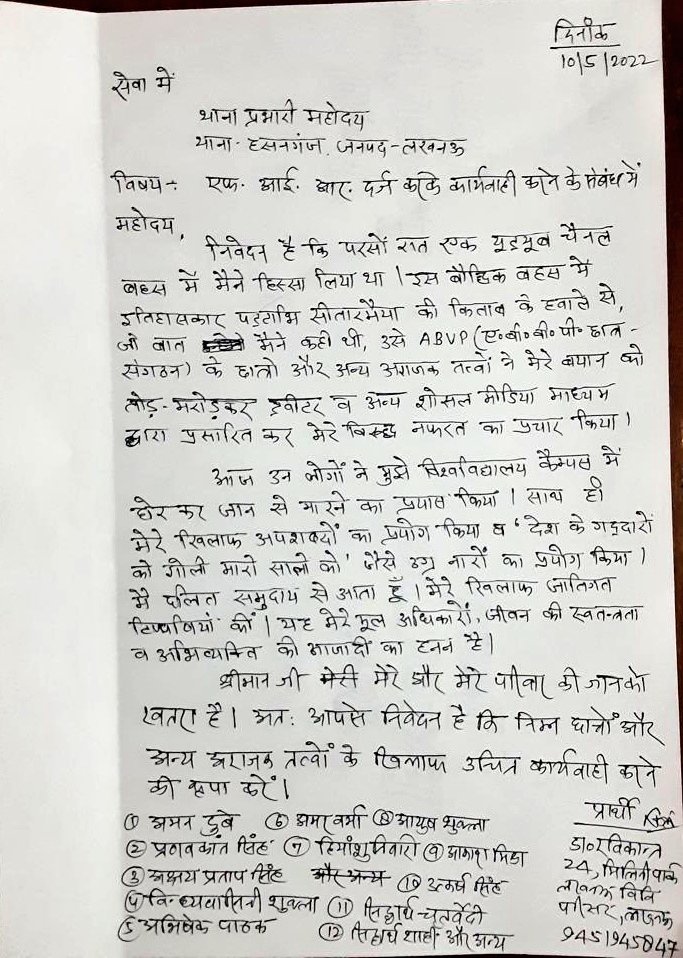 दिनांक
10/5/2022
सेवा में
थाना प्रभारी महोदय
थाना- हसनगंज, जनपद-लखनऊ
विषय:- एफ. आई. आर. दर्ज करके कार्यवाही करने के संबंध में
महोदय,
निवेदन है कि परसों रात एक यूट्यूब चैनल
बहस में मैंने हिस्सा लिया था। इस बौद्धिक बहस में
इतिहासकार पट्टाभि सीतारमैया की किताब के हवाले से,
जो बात मैंने कही थी, उसे ABVP (ए.बी.वी.पी. छात्र-
संगठन) के छात्रों और अन्य अराजक तत्वों ने मेरे बयान को
तोड़-मरोड़कर ट्वीटर व अन्य शोसल मीडिया माध्यम
द्वारा प्रसारित कर मेरे विरुद्ध नफरत का प्रचार किया।
आज उन लोगों ने मुझे विश्वविद्यालय कैम्पस में
घेर कर जान से मारने का प्रयास किया। साथ ही
मेरे खिलाफ अपशब्दों का प्रयोग किया व 'देश के गद्दारों
को गोली मारो सालों को' जैसे उग्र नारों का प्रयोग किया।
मैं दलित समुदाय से आता हूँ। मेरे खिलाफ जातिगत
टिप्पणियां कीं। यह मेरे मूल अधिकारों, जीवन की स्वतन्त्रता
व अभिव्यक्ति की आजादी का हनन है।
श्रीमान जी मेरी मेरे और मेरे परिवार की जान को
खतरा है। अत: आपसे निवेदन है कि निम्न छात्रों और
अन्य अराजक तत्वों के खिलाफ उचित कार्यवाही करने
की कृपा करें।
① अमन दुबे ⑥ अमर वर्मा ⑧ आयुष शुक्ला
② प्रणव कांत सिंह ⑦ हिमांशु तिवारी ⑨ आकाश मिश्रा
③ अक्षय प्रताप सिंह और अन्य ⑩ उत्कर्ष सिंह
④ विन्ध्यवासिनी शुक्ला ⑪ सिद्धार्थ चतुर्वेदी
⑤ अभिषेक पाठक ⑫ सिद्धार्थ शाही और अन्य
प्रार्थी
डा० रविकान्त
24, मिलिनी पार्क
लखनऊ विवि
परिसर, लखनऊ
9451945847